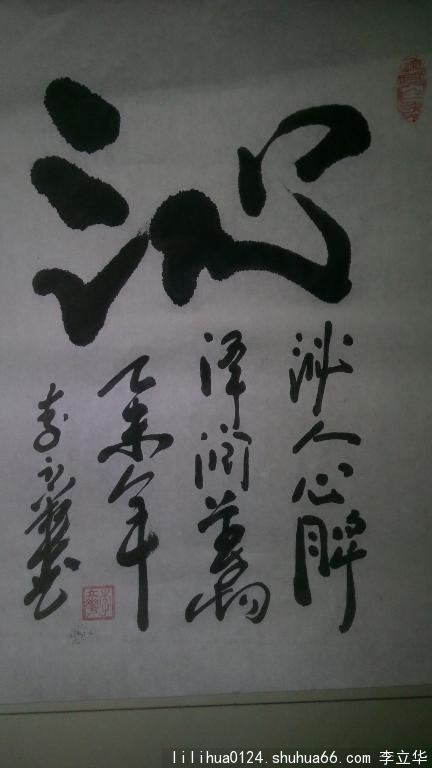 沁人心脾
泽润萬物
乙未年
李立華书
lilihua0124.shuhua66.com 李立华